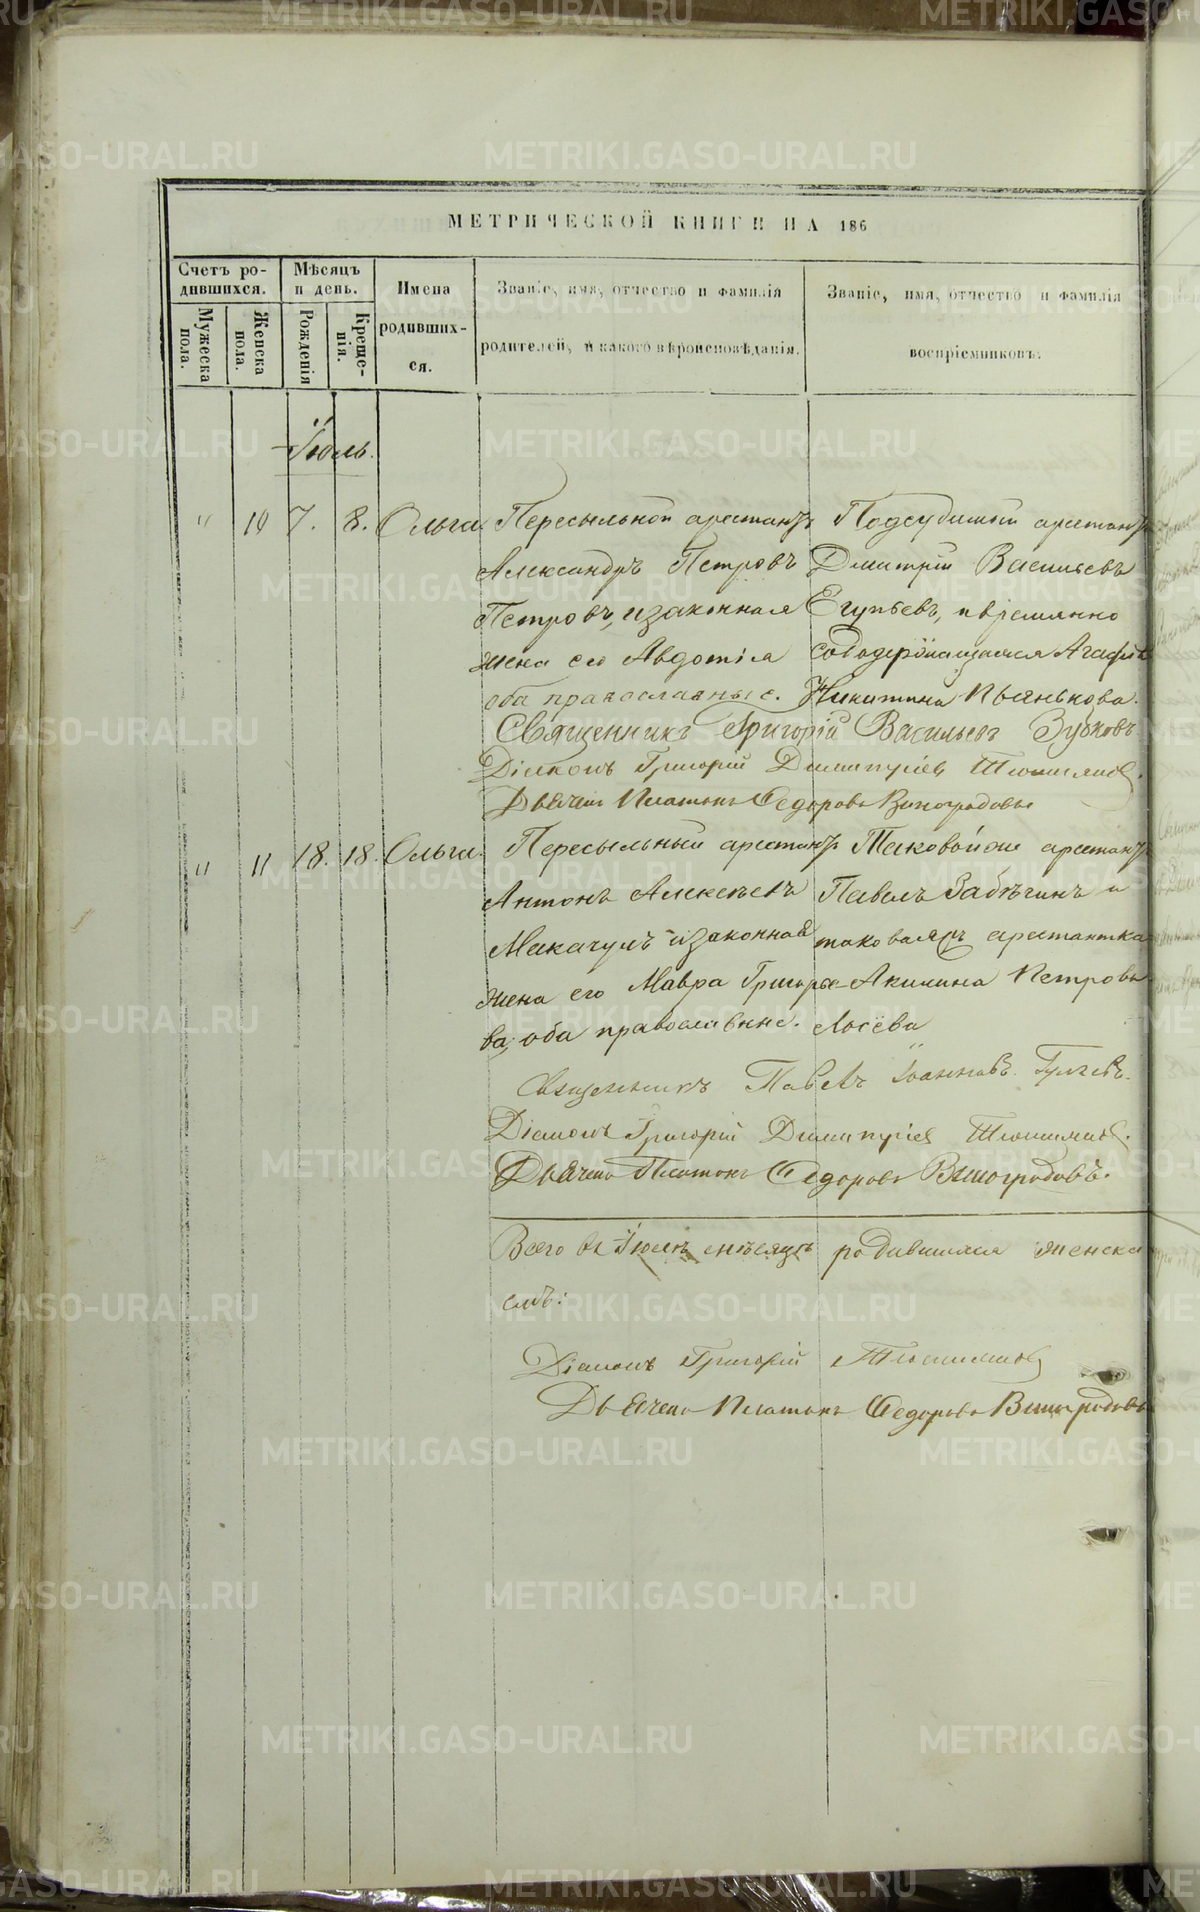 МЕТРИЧЕСКОЙ КНИГИ НА 186
Счетъ ро-
дившихся.
Мѣсяцъ
и день.
Имена
родивших-
ся.
Званіе, имя, отчество и фамилія
родителей, и какого вѣроисповѣданія.
Званіе, имя, отчество и фамилія
воспріемниковъ.
Мужеска
пола.
Женска
пола.
Рожденія
Креще-
нія.
Іюль.
" 10 7. 8. Ольга. Пересыльной арестантъ Подсудимый арестантъ
Александръ Петровъ Дмитрій Васильевъ
Петровъ, и законная Егупьевъ, и времянно
жена его Авдотія содержащаяся Агафія
оба православные. Никитина Пьянькова.
Священникъ Григорій Васильевъ Зубковъ
Діаконъ Григорій Димитріев
Дьячекъ Платонъ Федоровъ Виноградовъ
" 11 18. 18. Ольга. Пересыльный арестантъ Таковой же арестантъ
Антонъ Алексѣевъ Павелъ Забѣгинъ и
и законная таковаяжъ арестантка
жена его Мавра Григорье- Акилина Петрова
ва, оба православные. Лосева
Священникъ Павелъ Іоанновъ
Діаконъ Григорій Димитріев
Дьячекъ Платонъ Федоровъ Виноградовъ.
Всего въ Іюлѣ мѣсяцѣ родившихся женска
Діаконъ Григорій
Дьячекъ Платонъ Федоровъ Виноградовъ
METRIKI.GASO-URAL.RU